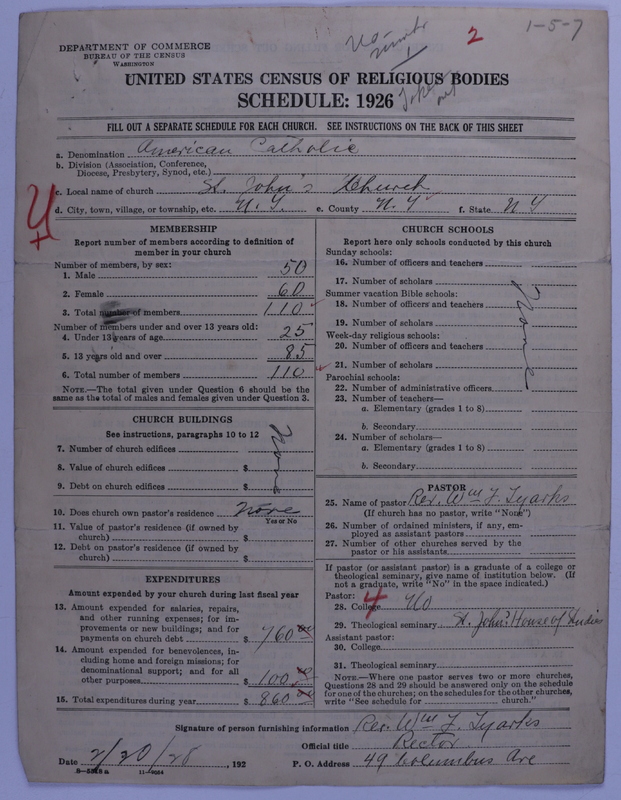 1-5-7
2
No number
1
DEPARTMENT OF COMMERCE
BUREAU OF THE CENSUS
WASHINGTON
UNITED STATES CENSUS OF RELIGIOUS BODIES
SCHEDULE: 1926
FILL OUT A SEPARATE SCHEDULE FOR EACH CHURCH. SEE INSTRUCTIONS ON THE BACK OF THIS SHEET
a. Denomination American Catholic
b. Division (Association, Conference,
Diocese, Presbytery, Synod, etc.)
c. Local name of church St. John's Church
d. City, town, village, or township, etc. N.Y. e. County N.Y f. State NY
MEMBERSHIP
Report number of members according to definition of
member in your church
Number of members, by sex:
1. Male 50
2. Female 60
3. Total number of members 110
Number of members under and over 13 years old:
4. Under 13 years of age 25
5. 13 years old and over 85
6. Total number of members 110
NOTE.—The total given under Question 6 should be the
same as the total of males and females given under Question 3.
CHURCH BUILDINGS
See instructions, paragraphs 10 to 12
7. Number of church edifices
8. Value of church edifices $
9. Debt on church edifices $
None
10. Does church own pastor's residence None
Yes or No
11. Value of pastor's residence (if owned by
church) $
12. Debt on pastor's residence (if owned by
church) $
EXPENDITURES
Amount expended by your church during last fiscal year
13. Amount expended for salaries, repairs,
and other running expenses; for im-
provements or new buildings; and for
payments on church debt $ 760 00
14. Amount expended for benevolences, in-
cluding home and foreign missions; for
denominational support; and for all
other purposes $ 100 00
15. Total expenditures during year $ 860 00
CHURCH SCHOOLS
Report here only schools conducted by this church
Sunday schools:
16. Number of officers and teachers
17. Number of scholars
Summer vacation Bible schools:
18. Number of officers and teachers
19. Number of scholars
Week-day religious schools:
20. Number of officers and teachers
21. Number of scholars
Parochial schools:
22. Number of administrative officers
23. Number of teachers—
a. Elementary (grades 1 to 8)
b. Secondary
24. Number of scholars—
a. Elementary (grades 1 to 8)
b. Secondary
None
PASTOR
25. Name of pastor Rev. Wm F. Tyarks
(If church has no pastor, write "None")
26. Number of ordained ministers, if any, em-
ployed as assistant pastors
27. Number of other churches served by the
pastor or his assistants
If pastor (or assistant pastor) is a graduate of a college or
theological seminary, give name of institution below. (If
not a graduate, write "No" in the space indicated.)
Pastor:
28. College No
4
29. Theological seminary St. John's House of Studies
Assistant pastor:
30. College
31. Theological seminary
NOTE.—Where one pastor serves two or more churches,
Questions 28 and 29 should be answered only on the schedule
for one of the churches; on the schedules for the other churches,
write "See schedule for church."
Signature of person furnishing information Rev. Wm F. Tyarks
Official title Rector
Date 2/20/28, 192 P. O. Address 49 Columbus Ave
8-5518 a 11-9064